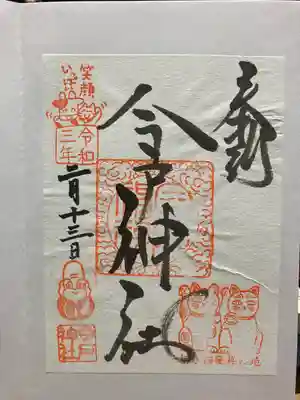 奉拝
今戸神社
笑顔
いっぱい
令和
三年
二月十三日